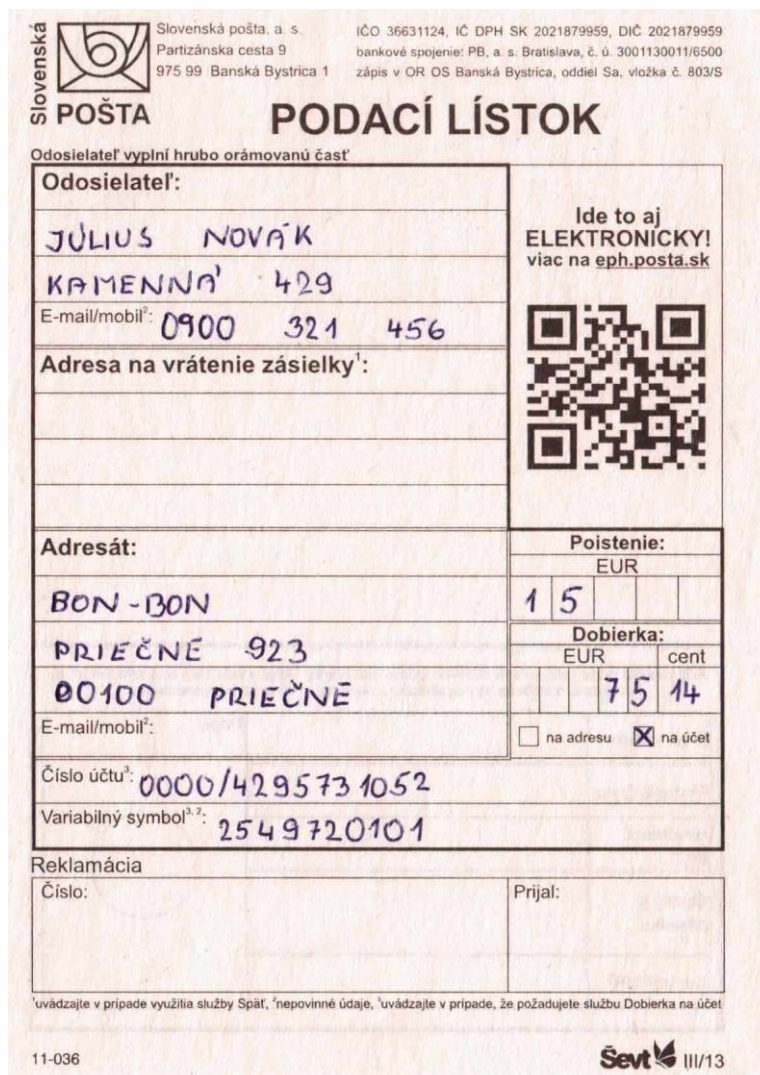 Slovenská
POŠTA
Slovenská pošta, a. s.
Partizánska cesta 9
975 99 Banská Bystrica 1
IČO 36631124, IČ DPH SK 2021879959, DIČ 2021879959
bankové spojenie: PB, a. s. Bratislava, č. ú. 3001130011/6500
zápis v OR OS Banská Bystrica, oddiel Sa, vložka č. 803/S
PODACÍ LÍSTOK
Odosielateľ vyplní hrubo orámovanú časť
Odosielateľ:
JÚLIUS NOVÁK
KAMENNÁ 429
E-mail/mobil²: 0900 321 456
Adresa na vrátenie zásielky¹:
Ide to aj
ELEKTRONICKY!
viac na eph.posta.sk
Adresát:
BON-BON
PRIEČNE 923
00100 PRIEČNE
E-mail/mobil²:
Poistenie:
EUR
15
Dobierka:
EUR cent
75 14
na adresu X na účet
Číslo účtu³: 0000/4295731052
Variabilný symbol³,²: 2549720101
Reklamácia
Číslo:
Prijal:
¹uvádzajte v prípade využitia služby Späť, ²nepovinné údaje, ³uvádzajte v prípade, že požadujete službu Dobierka na účet
11-036
Ševt III/13